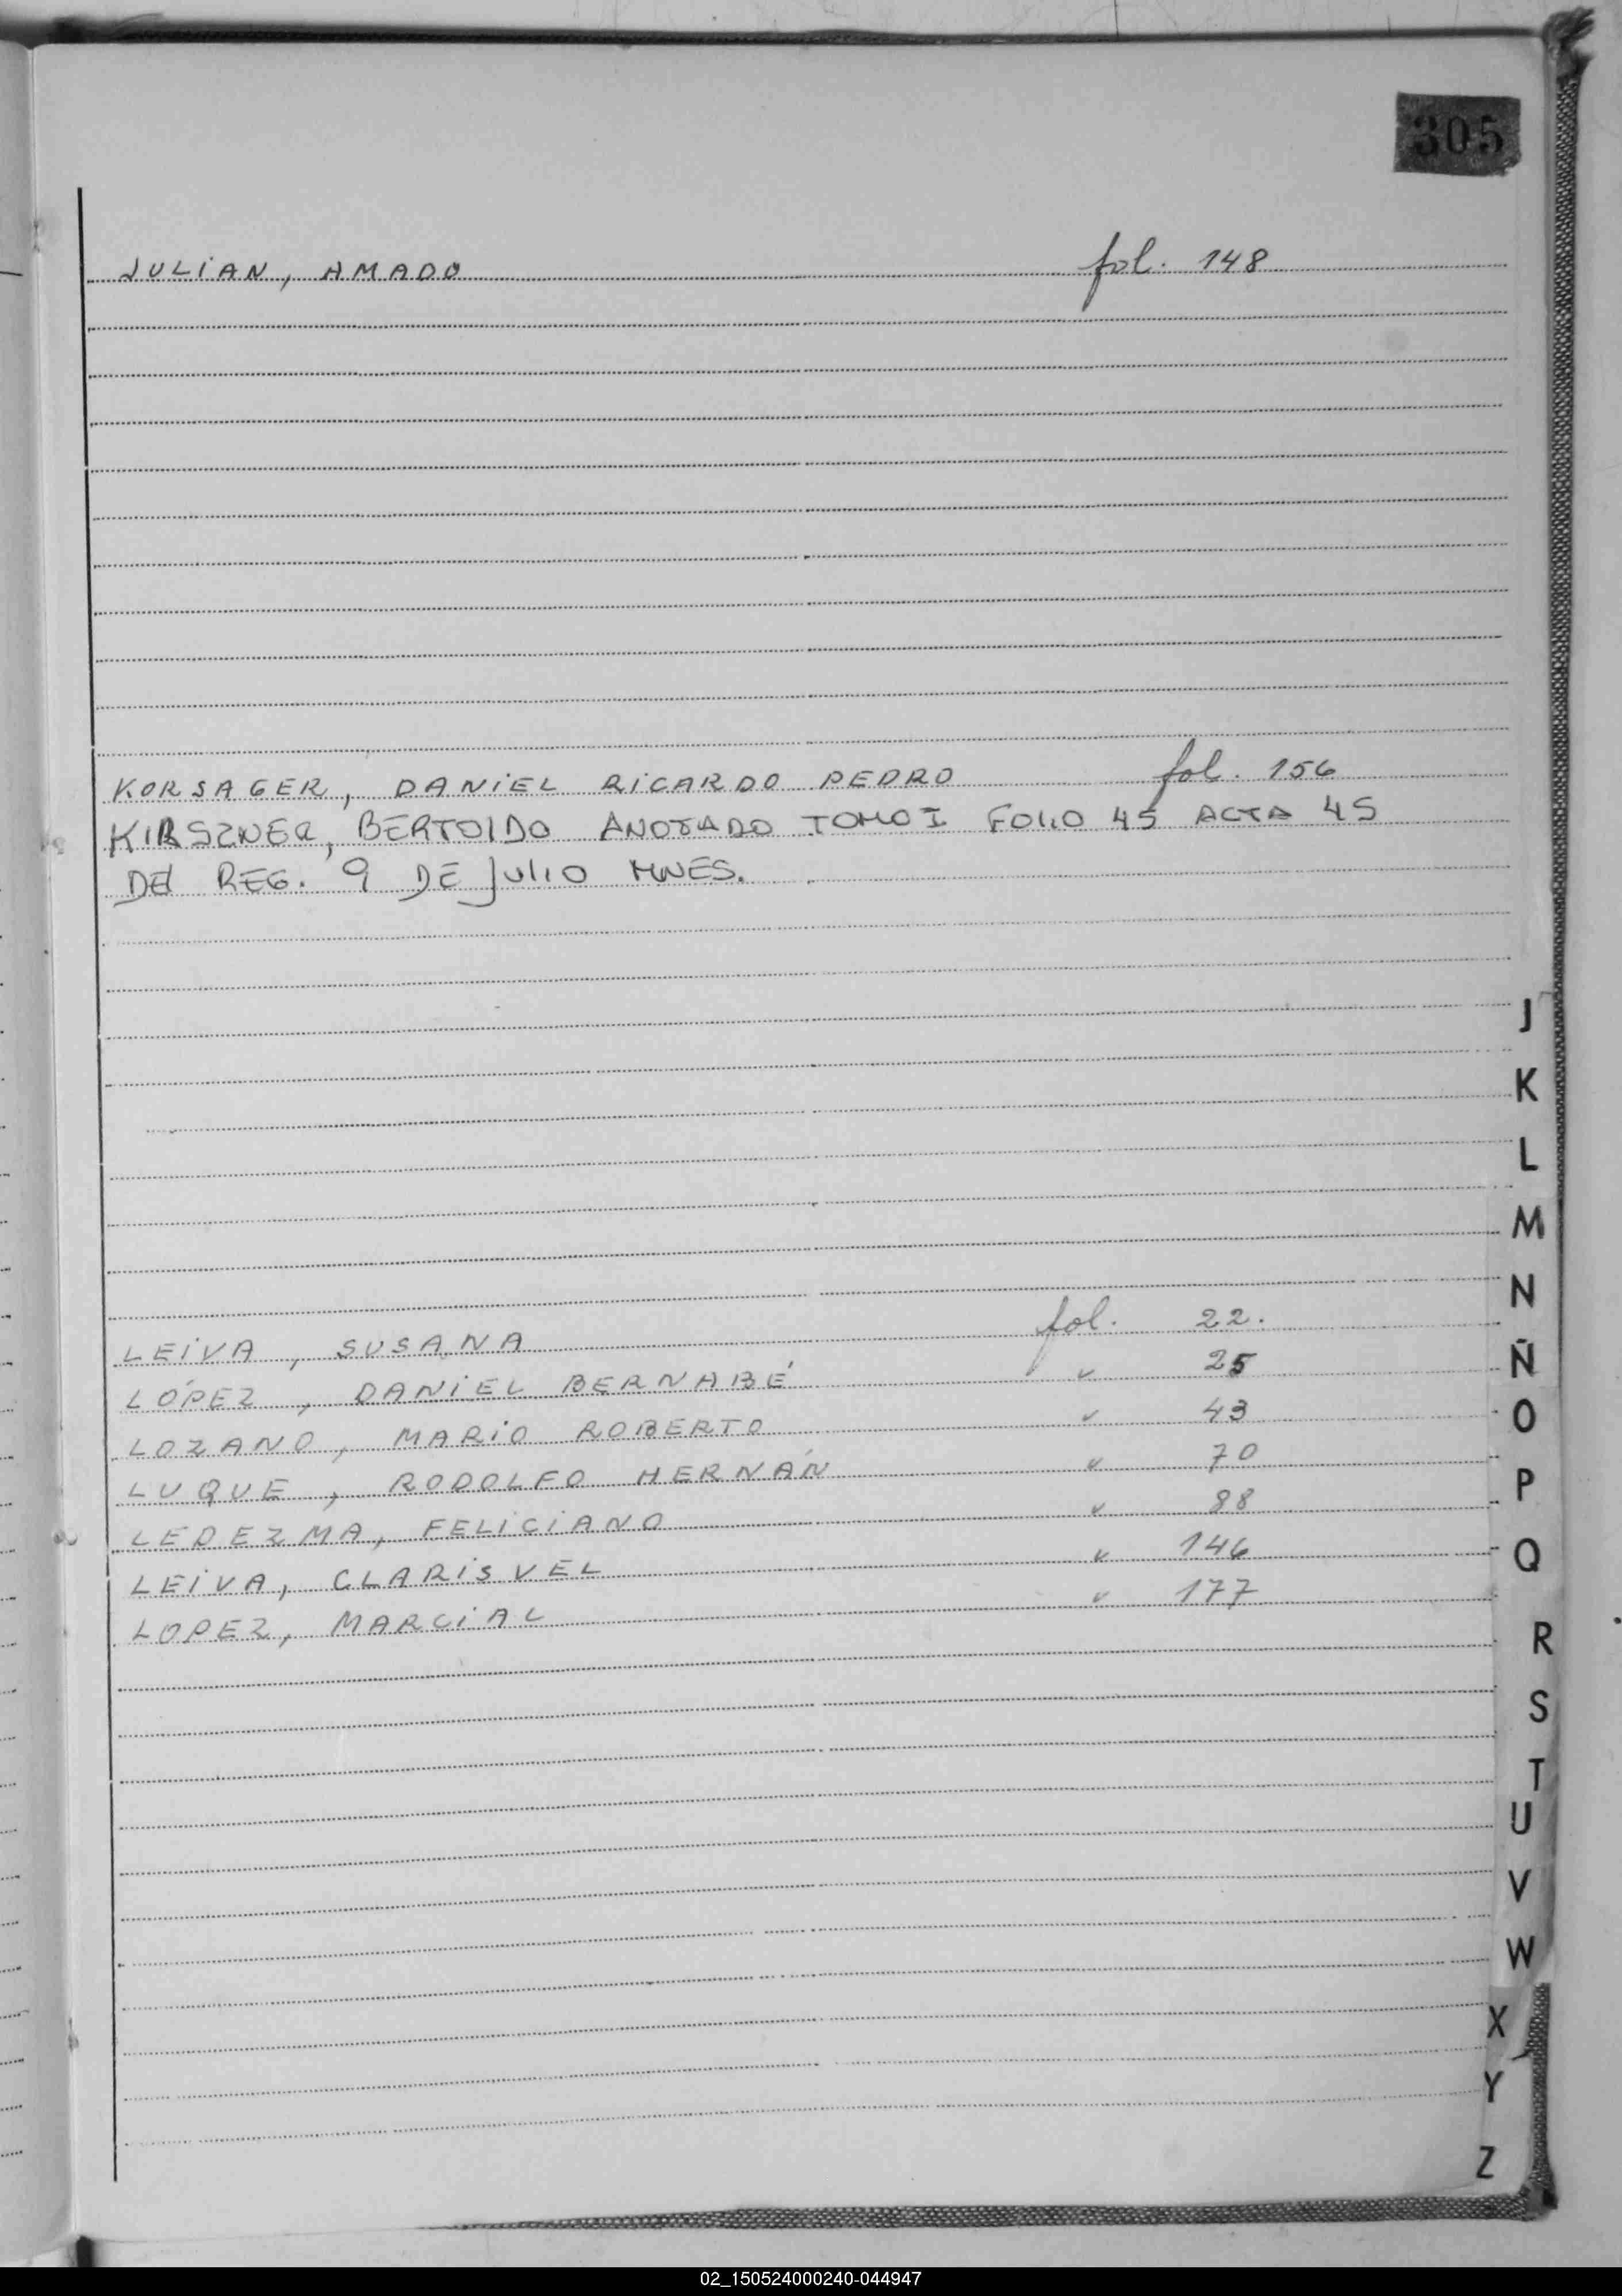 305
JULIAN, AMADO fol. 148
KORSAGER, DANIEL RICARDO PEDRO fol. 156
KIRSZNER, BERTOLDO ANOTADO TOMO I FOLIO 45 ACTA 45
DEL REG. 9 DE JULIO MNES.
LEIVA, SUSANA fol. 22.
LÓPEZ, DANIEL BERNABÉ " 25
LOZANO, MARIO ROBERTO " 43
LUQUE, RODOLFO HERNÁN " 70
LEDEZMA, FELICIANO " 88
LEIVA, CLARISVEL " 146
LOPEZ, MARCIAL " 177
J
K
L
M
N
Ñ
O
P
Q
R
S
T
U
V
W
X
Y
Z
02_150524000240-044947